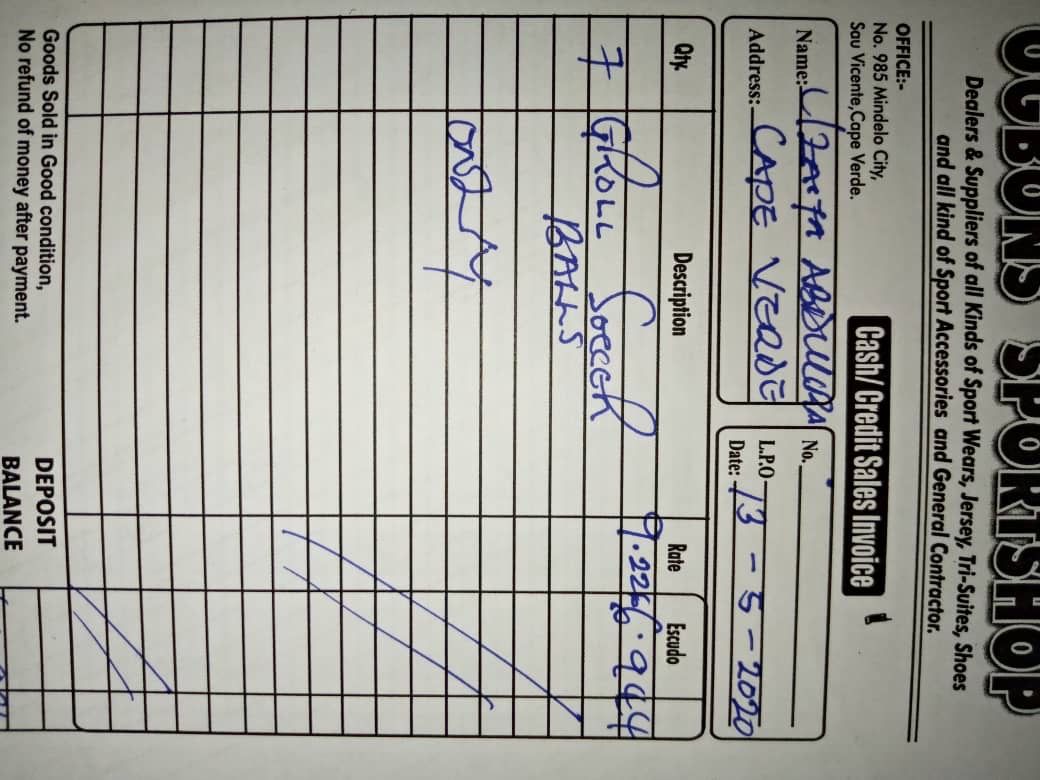 OGBONS SPORTSHOP
Dealers & Suppliers of all Kinds of Sport Wears, Jersey, Tri-Suites, Shoes
and all kind of Sport Accessories and General Contractor.
OFFICE:-
No. 985 Mindelo City,
Sau Vicente, Cape Verde.
Cash/Credit Sales Invoice
Name:
Address: CAPE VERDE
No.
L.P.O
Date: 13 - 5 - 2020
Qty. Description Rate Escudo
7 SOCCER
BALLS
ONLY
Goods Sold in Good condition,
No refund of money after payment.
DEPOSIT
BALANCE